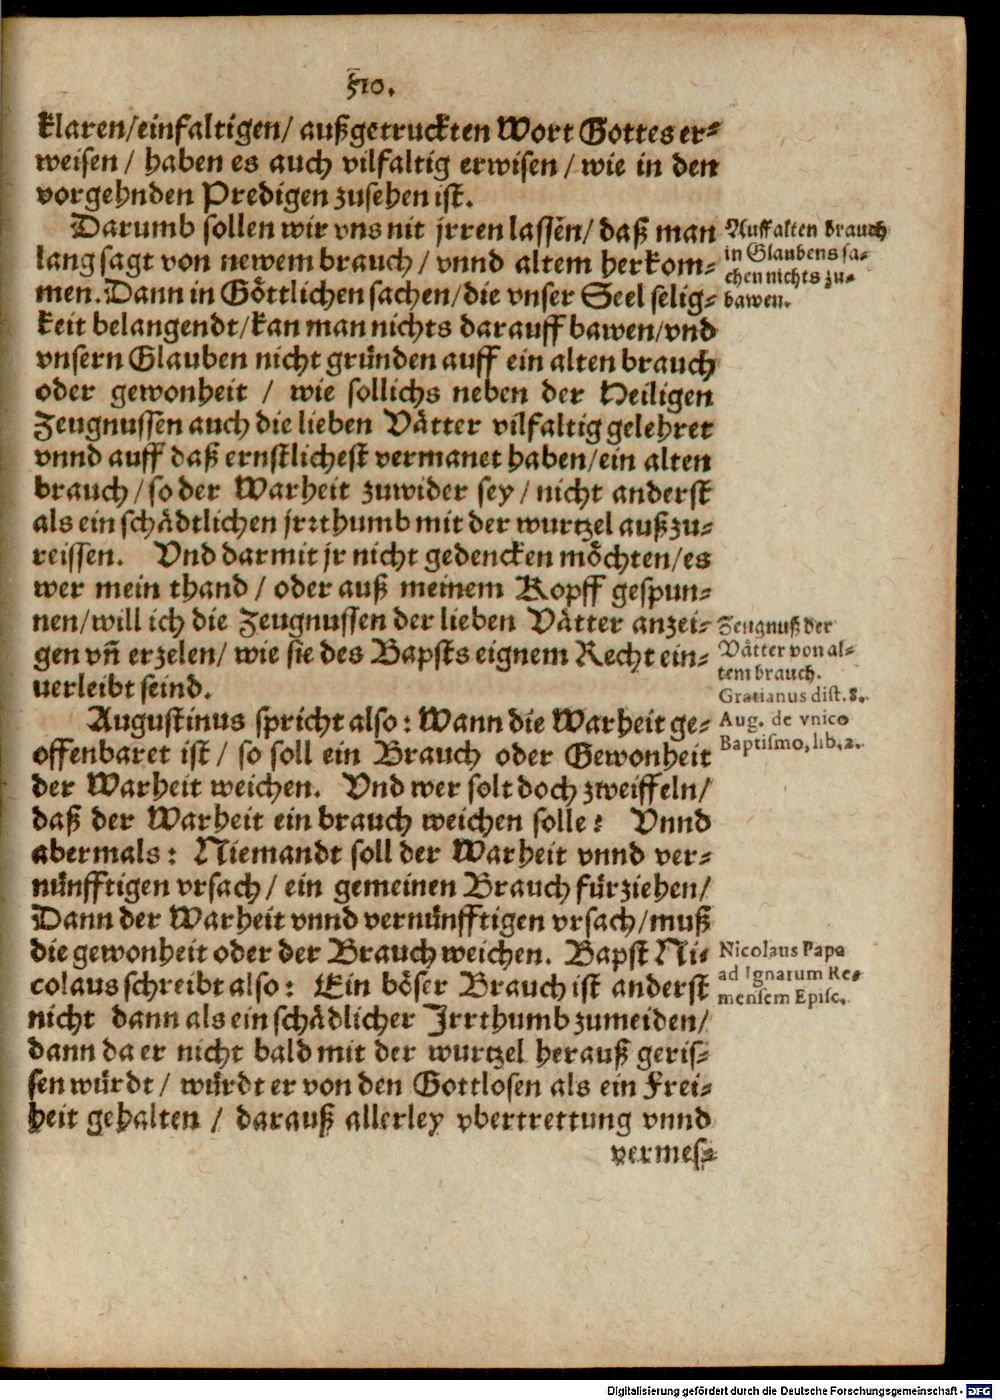 510.
klaren/einfaltigen/ außgetruckten Wort Gottes er⸗
weisen / haben es auch vilfaltig erwisen / wie in den
vorgehnden Predigen zusehen ist.
Darumb sollen wir vns nit jrren lassen/ daß man
lang sagt von newem brauch / vnnd altem herkom⸗
men. Dann in Göttlichen sachen/die vnser Seel selig⸗
keit belangendt/kan man nichts darauff bawen/vnd
vnsern Glauben nicht gründen auff ein alten brauch
oder gewonheit / wie sollichs neben der Heiligen
Zeugnussen auch die lieben Vätter vilfaltig gelehret
vnnd auff daß ernstlichest vermanet haben/ein alten
brauch/so der Warheit zuwider sey / nicht anderst
als ein schädtlichen jrrthumb mit der wurtzel außzu⸗
reissen. Vnd darmit jr nicht gedencken möchten/es
wer mein thand / oder auß meinem Kopff gespun⸗
nen/will ich die Zeugnussen der lieben Vätter anzei⸗
gen vñ erzelen/ wie sie des Bapsts eignem Recht ein⸗
uerleibt seind.
Augustinus spricht also: Wann die Warheit ge⸗
offenbaret ist / so soll ein Brauch oder Gewonheit
der Warheit weichen. Vnd wer solt doch zweiffeln/
daß der Warheit ein brauch weichen solle? Vnnd
abermals: Niemandt soll der Warheit vnnd ver⸗
nünfftigen vrsach / ein gemeinen Brauch fürziehen/
Dann der Warheit vnnd vernünfftigen vrsach/muß
die gewonheit oder der Brauch weichen. Bapst Ni⸗
colaus schreibt also: Ein böser Brauch ist anderst
nicht dann als ein schädlicher Jrrthumb zumeiden/
dann da er nicht bald mit der wurtzel herauß geris⸗
sen würdt / würdt er von den Gottlosen als ein Frei⸗
heit gehalten / darauß allerley vbertrettung vnnd
vermes⸗
Auff alten brauch
in Glaubens sa⸗
chen nichts zu⸗
bawen.
Zeugnuß der
Vätter von al⸗
tem brauch.
Gratianus dist. 8.
Aug. de vnico
Baptismo, lib. 2.
Nicolaus Papa
ad Ignarum Re⸗
mensem Episc.
Digitalisierung gefördert durch die Deutsche Forschungsgemeinschaft - DFG